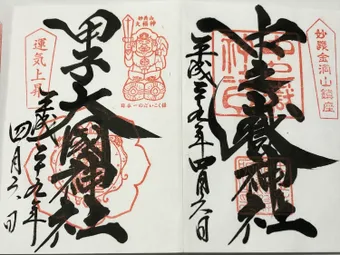 妙義金洞山鎮座
中之嶽神社
平成二十九年四月六日
甲子大國神社
日本一のだいこく様
運気上昇
平成二十九年
四月六日